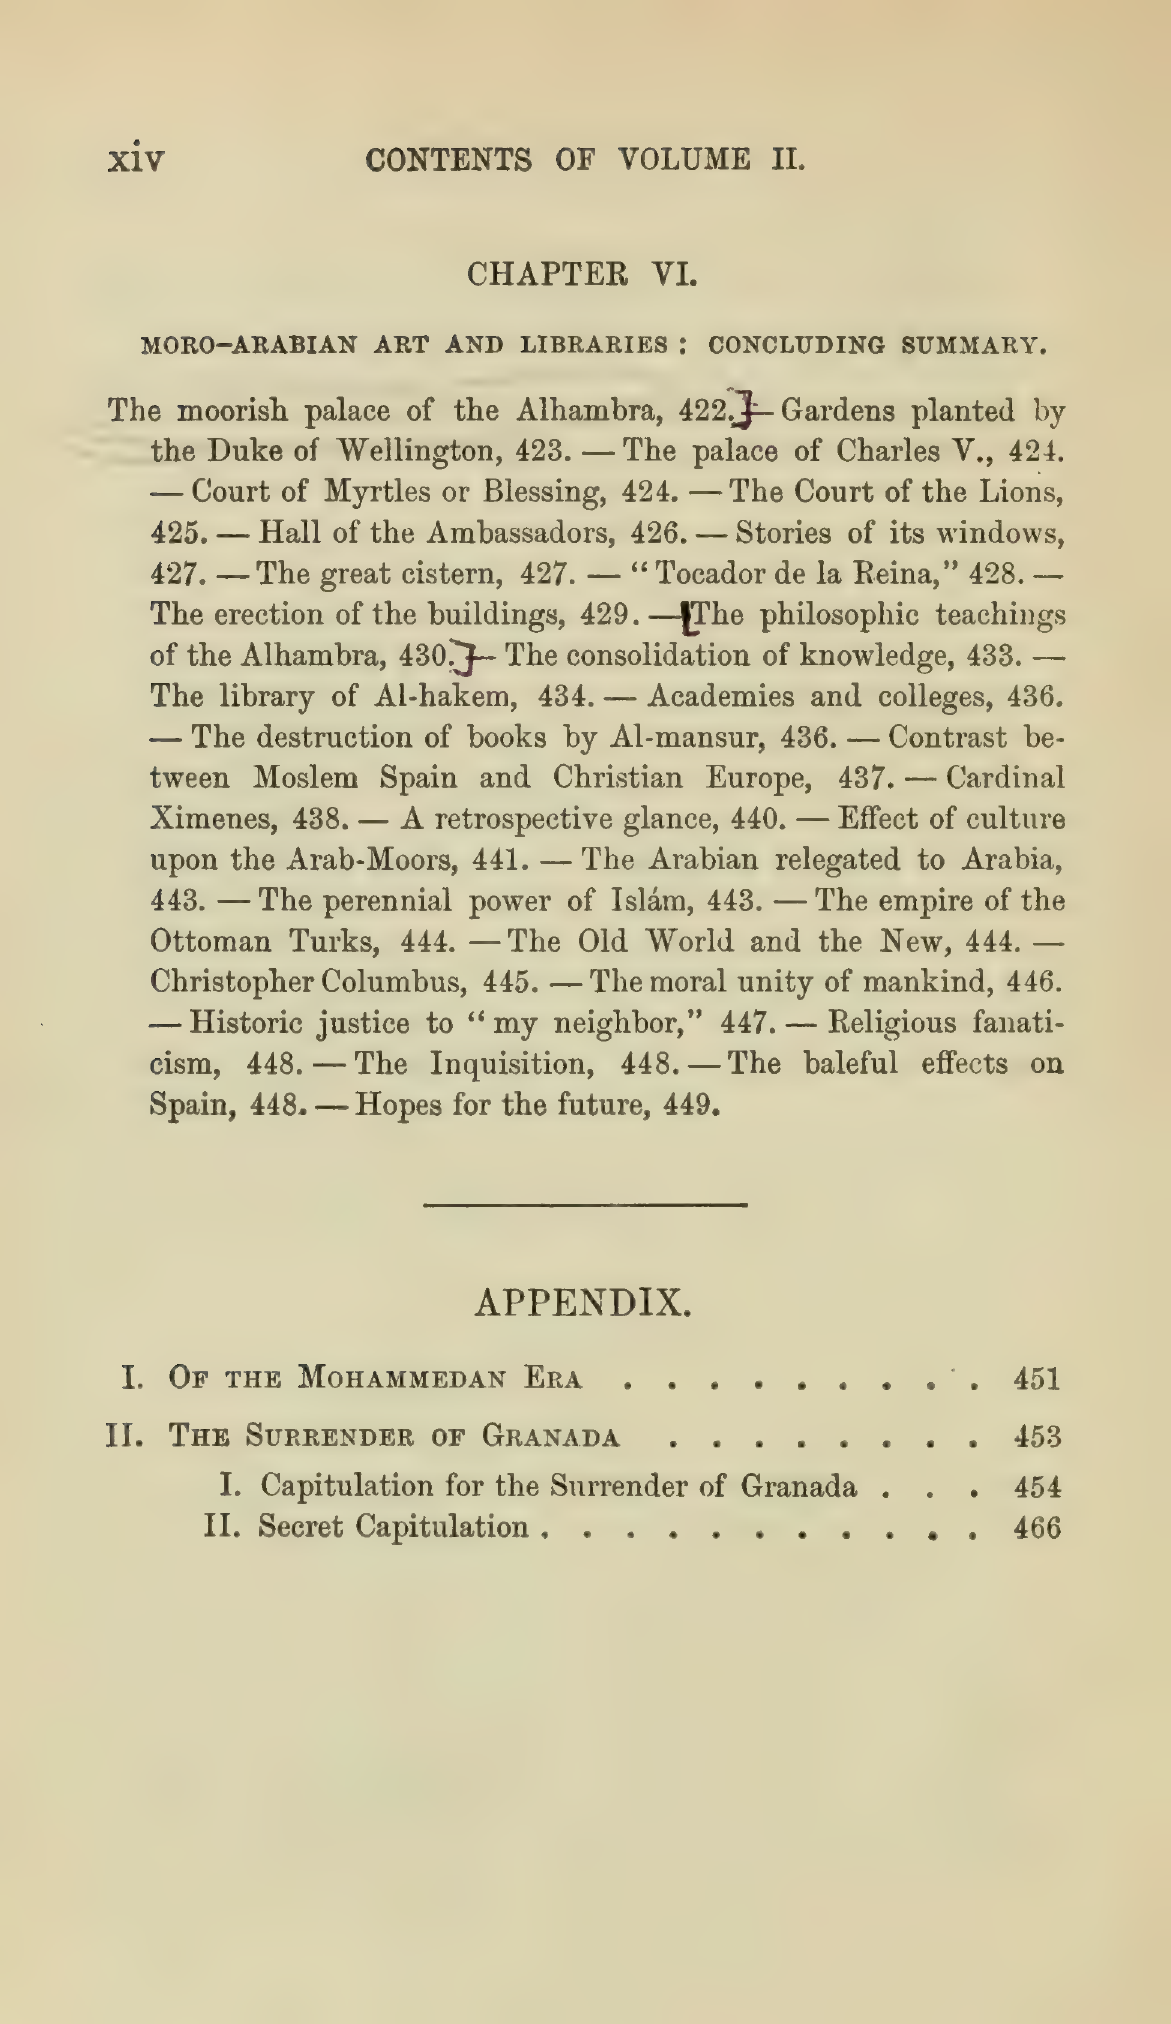 xiv CONTENTS OF VOLUME II.
CHAPTER VI.
MORO-ARABIAN ART AND LIBRARIES : CONCLUDING SUMMARY.
The moorish palace of the Alhambra, 422.]— Gardens planted by
the Duke of Wellington, 423. — The palace of Charles V., 424.
— Court of Myrtles or Blessing, 424. — The Court of the Lions,
425. — Hall of the Ambassadors, 426. — Stories of its windows,
427. — The great cistern, 427. — “Tocador de la Reina,” 428. —
The erection of the buildings, 429. —[The philosophic teachings
of the Alhambra, 430.]— The consolidation of knowledge, 433. —
The library of Al-hakem, 434. — Academies and colleges, 436.
— The destruction of books by Al-mansur, 436. — Contrast be-
tween Moslem Spain and Christian Europe, 437. — Cardinal
Ximenes, 438. — A retrospective glance, 440. — Effect of culture
upon the Arab-Moors, 441. — The Arabian relegated to Arabia,
443. — The perennial power of Islám, 443. — The empire of the
Ottoman Turks, 444. — The Old World and the New, 444. —
Christopher Columbus, 445. — The moral unity of mankind, 446.
— Historic justice to “my neighbor,” 447. — Religious fanati-
cism, 448. — The Inquisition, 448. — The baleful effects on
Spain, 448. — Hopes for the future, 449.
APPENDIX.
I. OF THE MOHAMMEDAN ERA . . . . . . . . . 451
II. THE SURRENDER OF GRANADA . . . . . . . . 453
I. Capitulation for the Surrender of Granada . . . 454
II. Secret Capitulation . . . . . . . . . . . 466